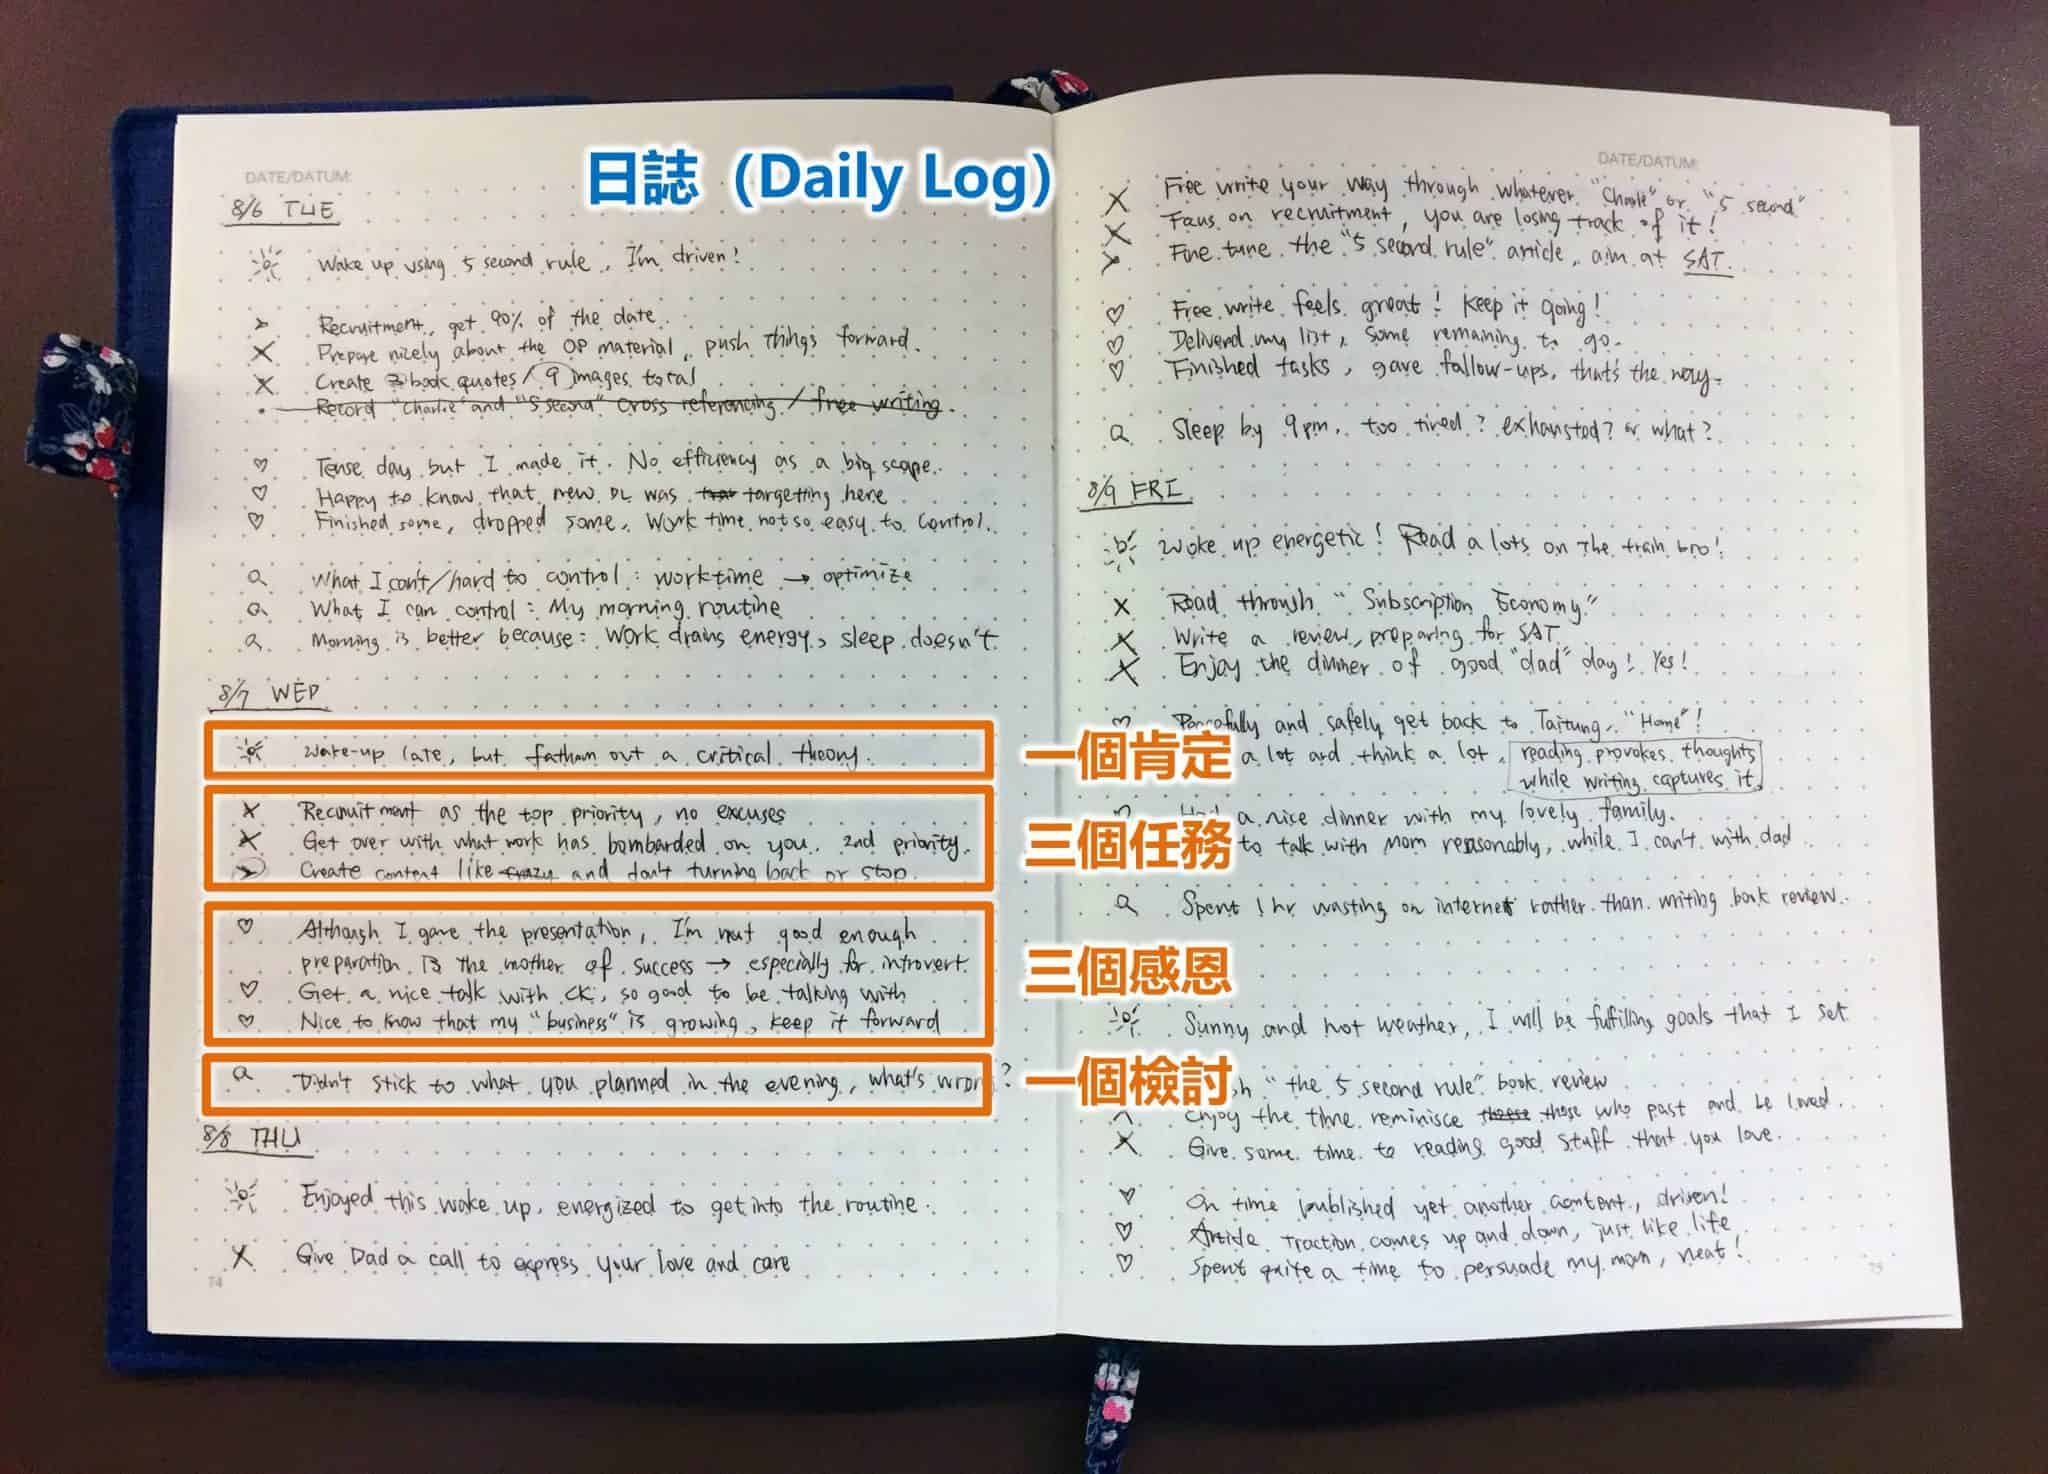 日誌（Daily Log）
DATE/DATUM:
8/6 TUE
Wake up using 5 second rule, I'm driven!
Recruitment, get 90% of the date.
Prepare nicely about the OP material, push things forward.
Create 3 book quotes / 9 images total
Record "Charlie" and "5 second" cross referencing / free writing.
Tense day but I made it. No efficiency as a big scape.
Happy to know that new DL was targetting here
Finished some, dropped some. Work time not so easy to control.
What I can't/hard to control: worktime → optimize
What I can control: My morning routine
Morning is better because: Work drains energy, sleep doesn't
8/7 WED
Wake-up late, but fathom out a critical theory.
一個肯定
Recruitment as the top priority, no excuses
Get over with what work has bombarded on you. 2nd priority.
Create content like crazy and don't turning back or stop.
三個任務
Although I gave the presentation, I'm not good enough
preparation is the mother of success → especially for introvert.
Get a nice talk with CK, so good to be talking with
Nice to know that my "business" is growing, keep it forward
三個感恩
Didn't stick to what you planned in the evening, what's wron ?
一個檢討
8/8 THU
Enjoyed this wake up, energized to get into the routine.
Give Dad a call to express your love and care
74
DATE/DATUM:
Free write your way through whatever "Charlie" or "5 second"
Focus on recruitment, you are losing track of it!
Fine tune the "5 second rule" article, aim at SAT.
Free write feels great! Keep it going!
Deliverd my list, some remaining to go.
Finished tasks, gave follow-ups, that's the way.
Sleep by 9pm, too tired? exhausted? or what?
8/9 FRI
Woke up energetic! Read a lots on the train, bro!
Read through "Subscription Economy"
Write a review, preparing for SAT
Enjoy the dinner of good "dad" day! Yes!
Peacefully and safely get back to Taitung, "Home"!
a lot and think a lot, reading provokes thoughts
while writing captures it.
Had a nice dinner with my lovely family.
to talk with Mom reasonably, while I can't with dad
Spent 1 hr wasting on internet rather than writing book review.
Sunny and hot weather, I will be fulfilling goals that I set
"the 5 second rule" book review
Enjoy the time reminisce those who past and be loved.
Give some time to reading good stuff that you love.
On time published yet another content, driven!
Article traction comes up and down, just like life
Spent quite a time to persuade my mom, neat!
75